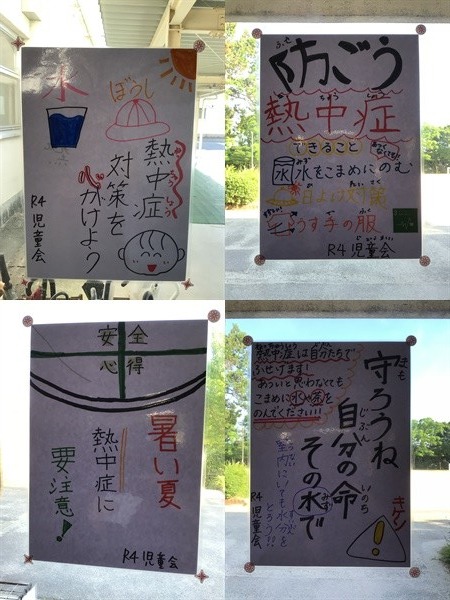 水
ぼうし
熱中症
ねっちゅうしょう
対策を
心がけよう
R4 児童会
防ごう
ふせ
熱中症
できること
水水をこまめにのむ
日よけ対策
うす手の服
R4 児童会
じどうかい
安全
心得
暑い夏
熱中症に
要注意!
R4 児童会
熱中症は自分たちで
ふせけます!
あついと思わなくても
こまめに水や茶を
のんでください!!!
守ろうね
まも
自分の命
じぶん
いのち
その水で
みず
キケン
!
室内にいても水分を
とろう!!
R4 児童会